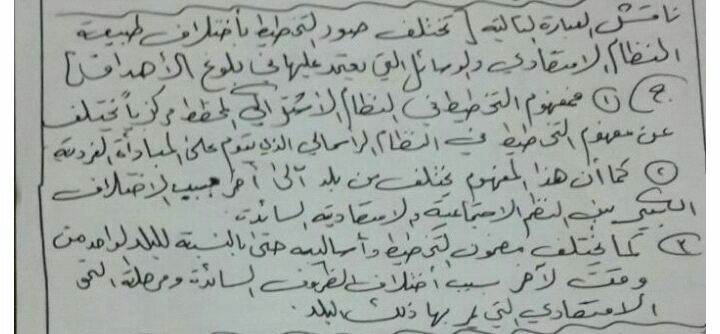 ناقش العبارة التالية [تختلف صور التخطيط بأختلاف طبيعة
النظام الاقتصادي والوسائل التي يعتمد عليها في بلوغ الأهداف]
ج) ① فمفهوم التخطيط في النظام الأشتراكي المخطط مركزياً يختلف
عن مفهوم التخطيط في النظام الراسمالي الذي يقوم على المبادأة الفردية
② كما أن هذا المفهوم يختلف من بلد الى أخر بسبب الاختلاف
الكبير بين النظم الاجتماعية والاقتصادية السائدة.
③ كما يختلف مضمون التخطيط وأساليبه حتى بالنسبة للبلد الواحد من
وقت لآخر بسبب أختلاف الظروف السائدة ومرحلة النمو
الاقتصادي التي يمر بها ذلك البلد.